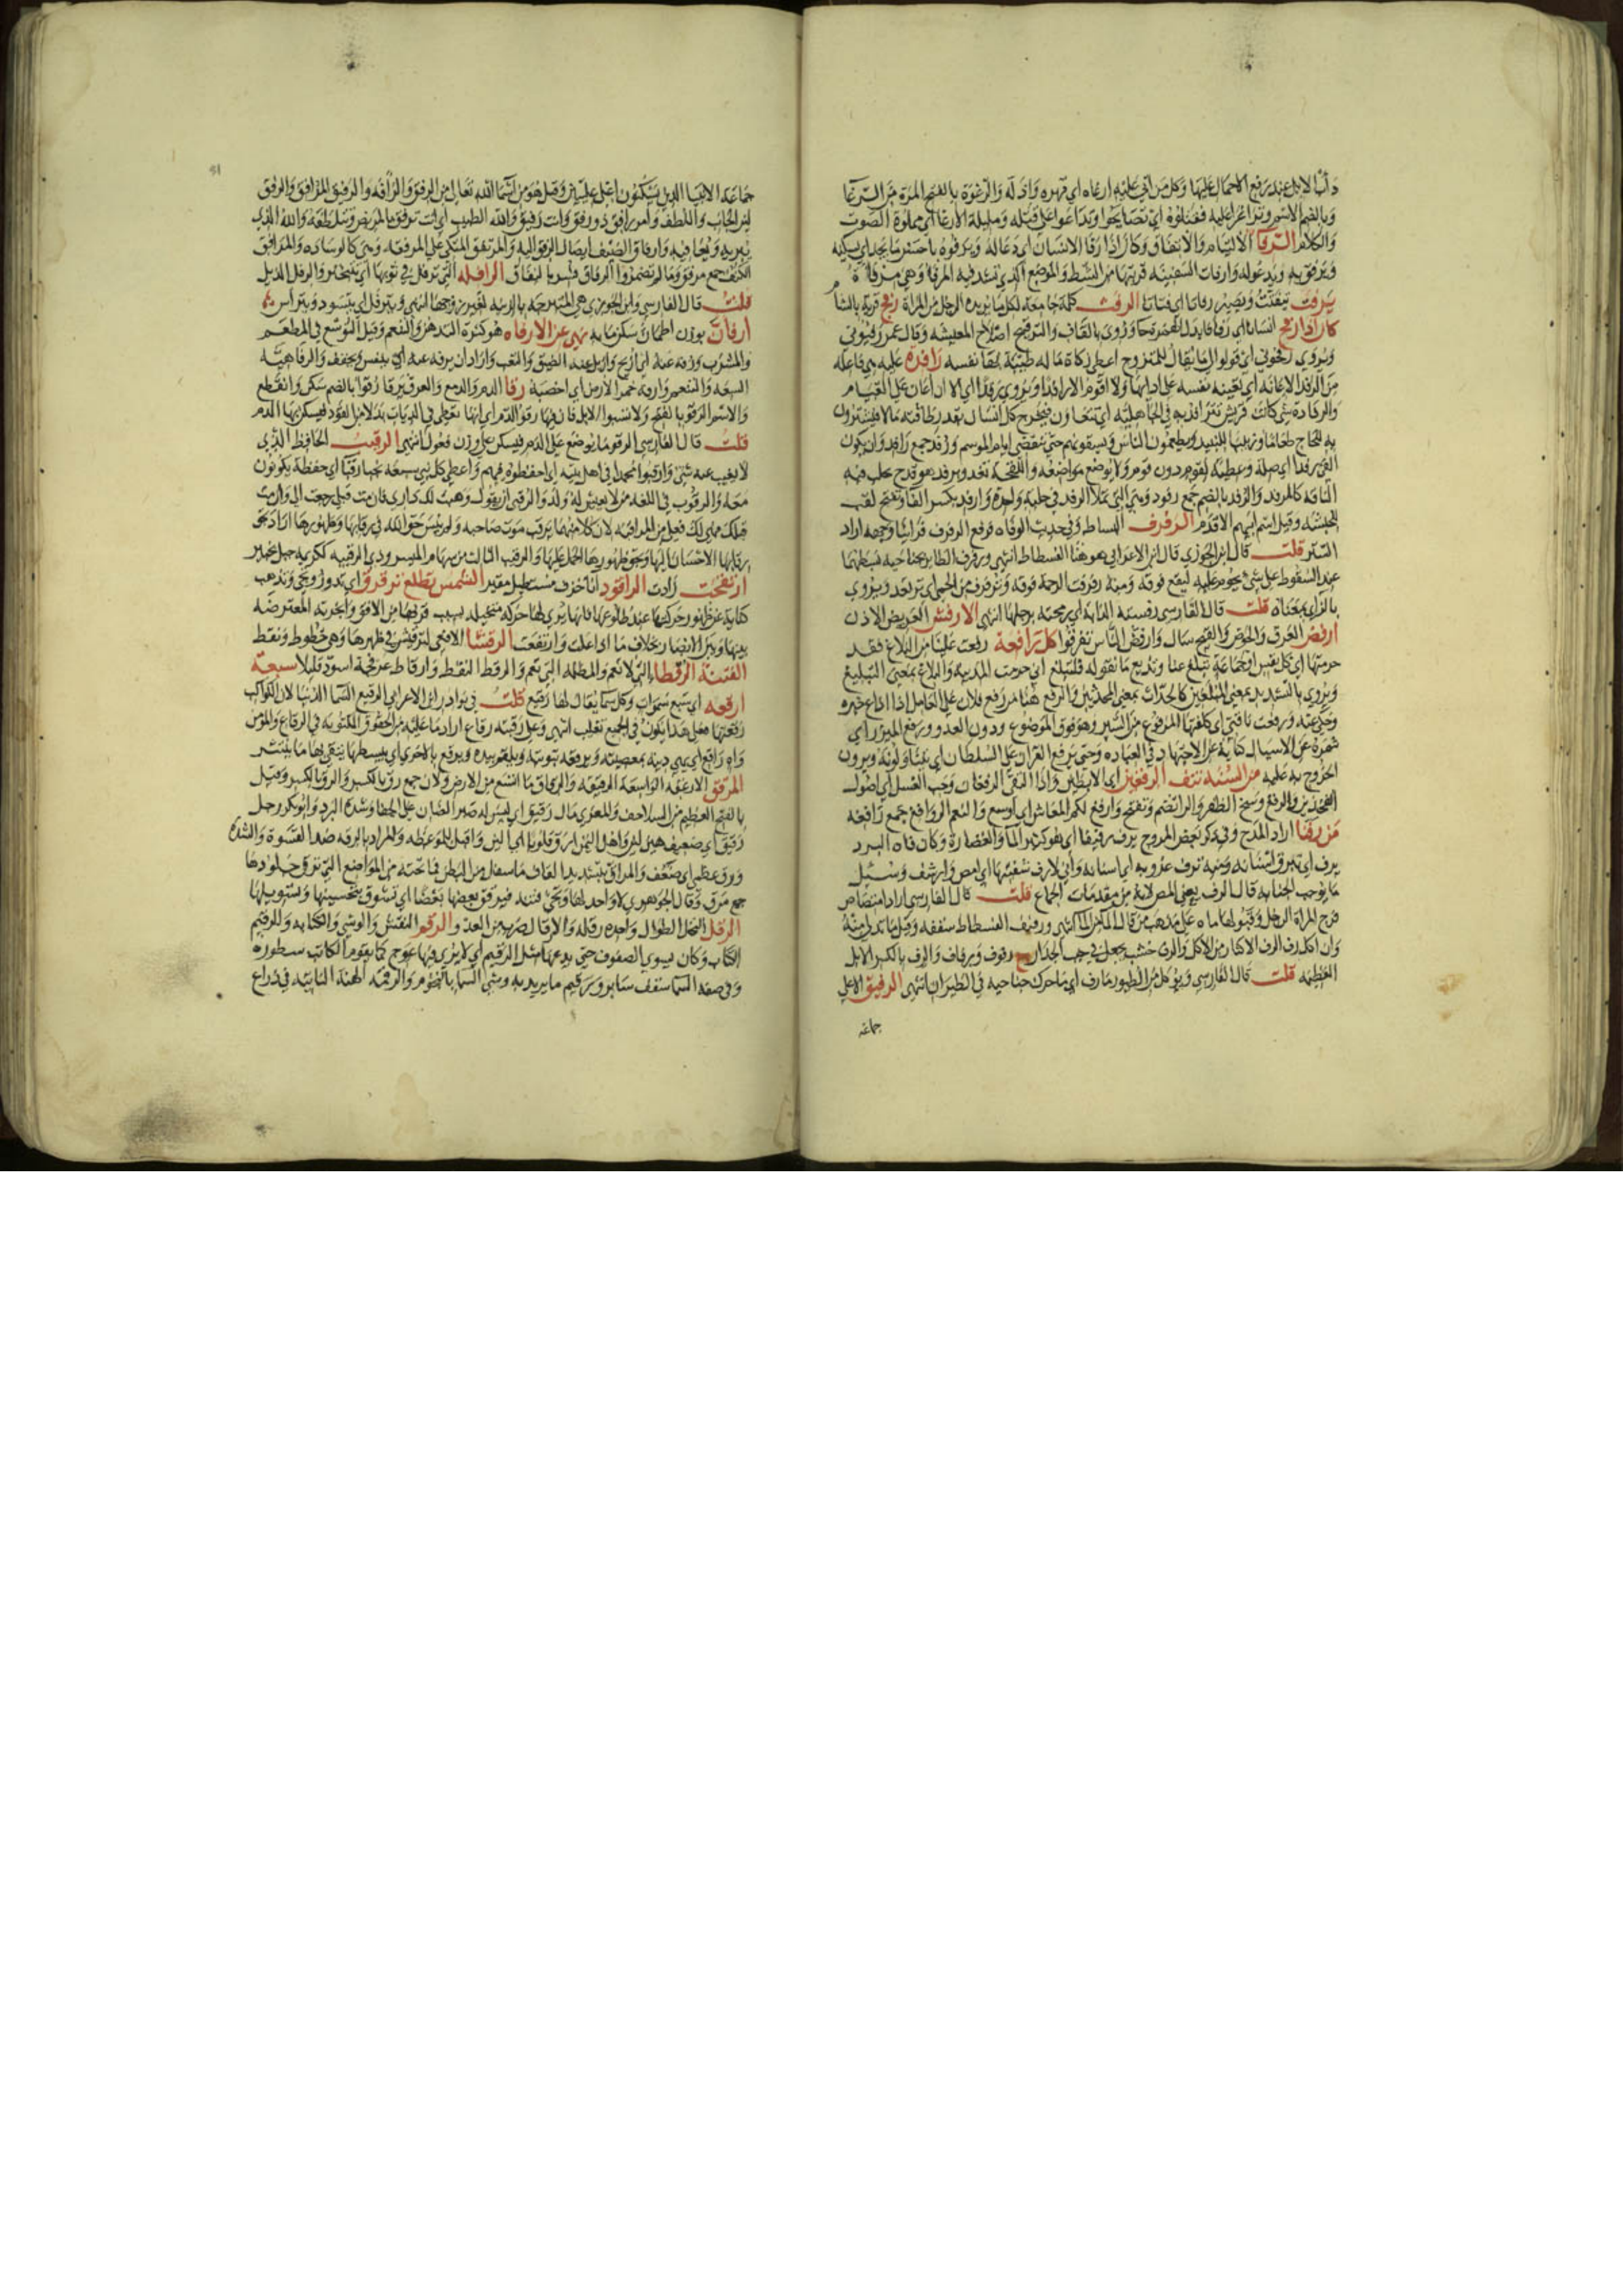 دأب الابل عند رفع الاحمال عليها وكل من أتي عليه ارغاه اي قهره واذله والرغوة بالفتح المرة من الرغا
وبالضم الاسم وتراغوا عليه فقتلوه اي تصايحوا وتداعوا على قتله ومليلة الارغا اي مملوة الصوت
والكلام الرفا الالتيام والاتفاق وكان اذا رفا الانسان اي دعا له ويرفوه باحسن ما يجد اي يسكنه
ويرفق به ويدعو له وارفات السفينة قربتها من الشط والموضع الذي تشد فيه المرفا
يرفت يتفتت ويصير رفاتا اي فتاتا الرفث كلمة جامعة لكل ما يريده الرجل من المراة رفح قرية بالشام
كان اذا رفح انسانا اي رفا فابدل الهمزة حا وروي بالقاف والترقيح اصلاح المعيشه وقال عمر رفيوني
ويروي رفحوني اي قولوا لي ما يقال للمتزوج اعطي زكاة ماله طيبة بها نفسه رافدة عليه هي فاعلة
من الرفد الاعانه اي تعينه نفسه على ادايها ولا اقوم الا رفدا ويروي رفدا اي الا ان اعان على القيام
والرفادة شي كانت قريش تترافد به في الجاهليه اي تتعاون فيخرج كل انسان بقدر طاقته مالا فيشترون
به للحاج طعاما وزبيبا للنبيذ ويطعمون الناس ويسقونهم حتى ينقضي ايام الموسم ورفد جمع رافد وان يكون
الفي رفدا اي صلة وعطية لقوم دون قوم ولا يوضع مواضعه واللقحة تغدو برفد هو قدح يحلب فيه
الناقة كالمرفد والرفد بالضم جمع رفود وهي التي تملا الرفد في حلبة واحدة وارفد بكسر الفا وتفتح لقب
للحبشة وقيل اسم ابيهم الاقدم الرفرف البساط وفي حديث الوفاه فرفع الرفرف فراينا وجهه اراد
الستر قلت قال ابن الجوزي قال ابن الاعرابي هو هنا الفسطاط انتهى ورفرف الطاير بجناحيه بسطهما
عند السقوط على شي يحوم عليه ليقع فوقه ومنه رفرفت الرحمة فوقه وترفرف من الحمى اي ترتعد ويروي
بالزاي بمعناه قلت قال الفارسي رفسته الدابة اي رمحته برجلها انتهى الارفش العريض الاذن
ارفض العرق والحوض والقيح سال وارفض الناس تفرقوا كل رافعة رفعت علينا من البلاغ فقد
حرمتها اي كل نفس او جماعة تبلغ عنا وتذيع ما نقوله فلتبلغ اني حرمت المدينة والبلاغ بمعنى التبليغ
ويروي بالتشديد بمعنى المبلغين كالحداث بمعنى المحدثين والرفع هنا من رفع فلان على العامل اذا اذاع خبره
وحكى عنه ورفعت ناقتي اي كلفتها المرفوع من السير وهو فوق الموضوع ودون العدو ورفع الميزر اي
شمره عن الاسبال كناية عن الاجتهاد في العبادة وحتى يرفع القران على السلطان اي يتاولونه ويرون
الخروج به عليه من السنه نتف الرفغين اي الابطين واذا التقى الرفغان وجب الغسل اي اصول
الفخذين والرفغ وسخ الظفر والرا تضم وتفتح وارفغ لكم المعاش اي اوسع والنعم الروافغ جمع رافغه
من رفنا اراد المدح وفي ذكر بعض المروج يرف رفيفا اي هو كثير الما والغضارة وكان فاه البرد
يرف اي تبرق اسنانه ومنه ترف غروبه اي اسنانه واني لارف شفتيها اي امص وارشف وسئل
ما يوجب الجنابه قال الرف يعني المص لانه من مقدمات الجماع قلت قال الفارسي اراد امتصاص
فرج المراة الرجل وقبولها ماه على مذهب من قال الما من الما انتهى ورفيف الفسطاط سقفه وقيل ما تدلى منه
وان اكل رف الرف الاكثار من الاكل والرف خشب يجعل في جنب الجدار ج رفوف ورفاف والرف بالكسر الابل
العظيمه قلت قال الفارسي ويوكل من الطيور ما رف اي ما حرك جناحيه في الطيران انتهى الرفيق الاعلي
جماعة
جماعة الانبيا الذين يسكنون اعلى عليين وقيل هو من اسما الله تعالى من الرفق والرافه والرفيق المرافق والرفق
لين الجانب واللطف وامر رافق ذو رفق وانت رفيق والله الطبيب اي انت ترفق بالمريض وتتلطفه والله الذي
يبريه ويعافيه وارفاق الضيف ايصال الرفق اليه والمرتفق المتكي على المرفقه وهي كالوساده والمرافق
الكنف جمع مرفق وما لم تضمروا الرفاق فسر بالنفاق الرافله التي ترفل في ثوبها اي تتبختر والرفل الذيل
قلت قال الفارسي وابن الجوزي هي المتبرجه بالزينه لغير زوجها انتهى ويترفل اي يتسود ويتراس ثم
ارفان بوزن اطمان سكن ما به نهي عن الارفاه هو كثرة التدهن والتنعم وقيل التوسع في المطعم
والمشرب ورفه عنه اي ازيح وازيل عنه الضيق والتعب واراد ان يرفه عنه اي ينفس ويخفف والرفاهية
السعه والتنعم وارفه خمر الارض اي اخصبه رقا الدم والدمع والعرق يرقا رقوا بالضم سكن وانقطع
والاسم الرقو بالفتح ولا تسبوا الابل فان فيها رقو الدم اي انها تعطى في الديات بدلا من القود فيسكن بها الدم
قلت قال الفارسي الرقو ما يوضع على الدم فيسكن على وزن فعول انتهى الرقيب الحافظ الذي
لا يغيب عنه شي وارقبوا محمدا في اهل بيته اي احفظوه فيهم واعطي كل نبي سبعة نجبا رقبا اي حفظة يكونون
معه والرقوب في اللغه من لا يعيش له ولد والرقبى ان يقول وهبت لك داري فان مت قبلي رجعت الي وان مت
قبلك فهي لك فعلى من المراقبه لان كلا منهما يرقب موت صاحبه ولم ينس حق الله في رقابها وظهورها اراد بحق
رقابها الاحسان اليها وبحق ظهورها الحمل عليها والرقيب الثالث من سهام الميسر وذي الرقيبه ككريمه جبل بخيبر
ارتقحت زادت الراقود انا خزف مستطيل مقير الشمس تطلع ترقرق اي تدور وتجي وتذهب
كناية عن ظهور حركتها عند طلوعها فانها يرى لها حركه متخيله بسبب قربها من الافق وابخرته المعترضه
بينها وبين الابصار بخلاف ما اذا علت وارتفعت الرقشا الافعى لترقيش في ظهرها وهي خطوط ونقط
الفتنة الرقطا التي لا تعم والمظلمه التي تعم والرقط النقط وارقاط عرفجه اسود قليلا سبعة
ارقعه اي سبع سموات وكل سما يقال لها رقيع قلت في نوادر ابن الاعرابي الرقيع السما الدنيا لان الكواكب
رقعتها فعلى هذا يكون في الجميع تغليب انتهى وعلى رقبته رقاع اراد ما عليه من الحقوق المكتوبه في الرقاع والمومن
واه راقع اي يهي دينه بمعصيته ويرقعه بتوبته ويلقم بيده ويرقع بالاخرى اي يبسطها يتقي بها ما ينتثر
المرقق الارغفه الواسعة الرقيقه والرقاق ما اتسع من الارض ولان جمع رق بالكسر والرق بالكسر وقيل
بالفتح العظيم من السلاحف وللمعزى مال رقيق اي ليس له صبر الضان على الجفا وشدة البرد وابو بكر رجل
رقيق اي ضعيف هين لين واهل اليمن ارق قلوبا اي الين واقبل للموعظه والمراد بالرقه ضد القسوة والشدة
ورق عظمي اي ضعف والمراق بتشديد القاف ما سفل من البطن فما تحته من المواضع التي ترق جلودها
جمع مرق وقال الجوهري لا واحد لها وتجي فتنة فيرقق بعضها بعضا اي تشوق بتحسينها وتسويلها
الرقل النخل الطوال واحده رقله والارقال ضرب من العدو الرقم النقش والوشي والكتابه والرقيم
الكتاب وكان يسوي الصفوف حتى يدعها مثل الرقيم اي لا يرى فيها عوج كما يقوم الكاتب سطوره
وفي صفة السما سقف ساير ورقيم ماير يريد به وشي السما بالنجوم والرقمه الهنة الناتيه في ذراع